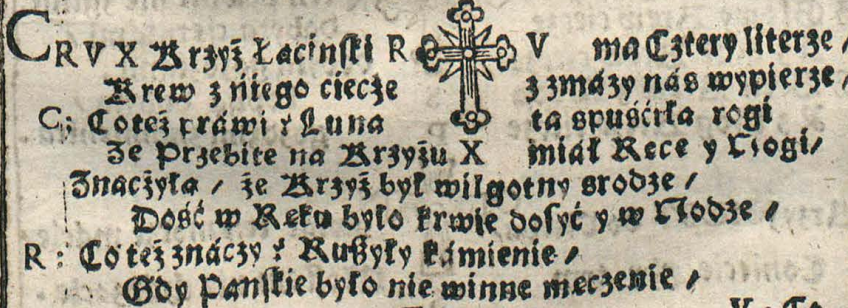 CRVX Krzyż Łaciński R V ma Cztery literze /
Krew z niego ciecże z zmázy nás wypierze /
C; Co też práwi? Luna ta spuściła rogi
Ze Przebite na Krzyżu X miał Rece y Nogi /
Znácżyła / że Krzyż był wilgotny srodze /
Dość w Reku było krwie dosyć y w Nodze /
R: Co też znáczy? Rußyły kámienie /
Gdy Panskie było nie winne meczenie /